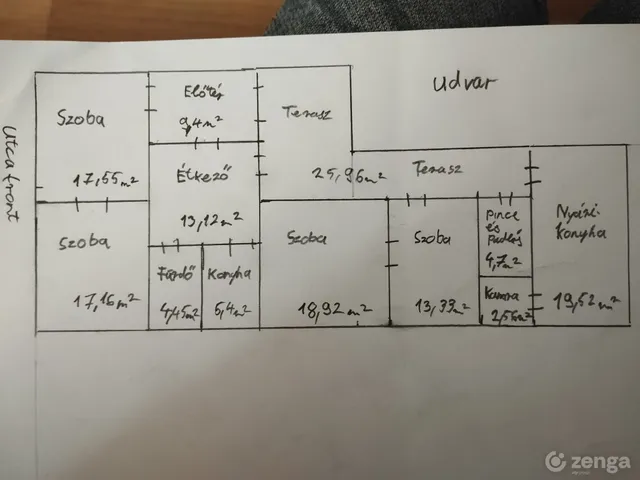 Utcafront
Szoba
17,55m²
Előtér
9,4m²
Terasz
25,96m²
Terasz
udvar
Étkező
13,12m²
Szoba
17,16m²
Fürdő
4,45m²
Konyha
5,4m²
Szoba
18,92m²
Szoba
13,33m²
pince
és
padlás
4,7m²
Kamra
2,55m²
Nyári-
konyha
19,52m²
zenga